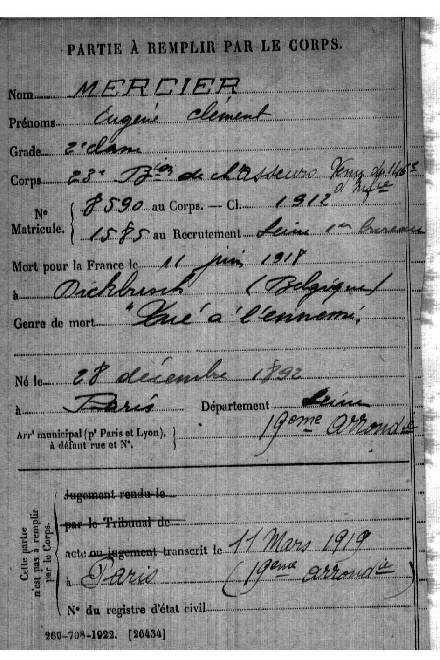 PARTIE À REMPLIR PAR LE CORPS.
Nom MERCIER
Prénoms Eugène Clément
Grade 2e classe
Corps 23e Bon de chasseurs Venu du 146e
d'Infie
N° Matricule. { 8590 au Corps. — Cl. 1912
1585 au Recrutement Seine 1er bureau
Mort pour la France le 11 juin 1918
à Dickbusch (Belgique)
Genre de mort "Tué à l'ennemi.
Né le 28 décembre 1892
à Paris Département Seine
Arrt municipal (pr Paris et Lyon), à défaut rue et N°. } 19eme arrondit
Cette partie n'est pas à remplir par le Corps.
Jugement rendu le
par le Tribunal de
acte ou jugement transcrit le 11 Mars 1919
à Paris (19eme arrondit)
N° du registre d'état civil
260-708-1922. [26434]